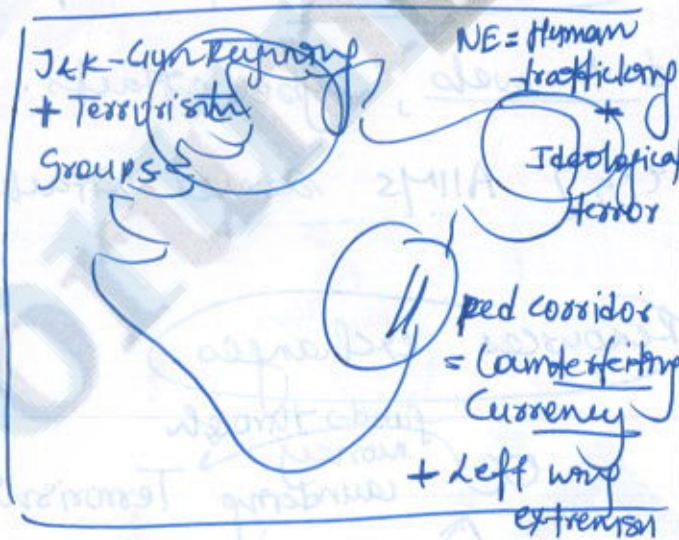 J&K - Gun Running
+ Terrorism
Groups
NE = Human
trafficking
+
Ideological
terror
Red corridor
= Counterfeiting
Currency
+ Left wing
extremism